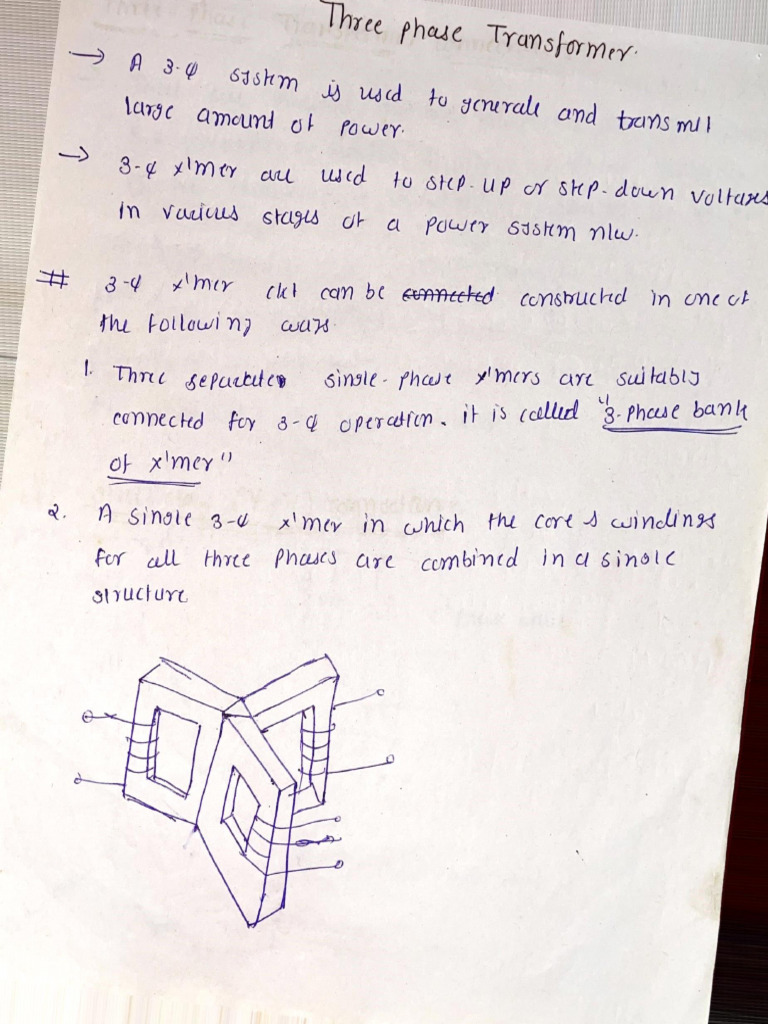 Three phase Transformer.
→ A 3-φ system is used to generate and transmit
large amount of power.
→ 3-φ x'mer are used to step-up or step-down voltages
in various stages of a power system n/w.
# 3-φ x'mer ckt can be connected constructed in one of
the following ways
1. Three separate single-phase x'mers are suitably
connected for 3-φ operation. it is called "3-phase bank
of x'mer"
2. A single 3-φ x'mer in which the core & windings
for all three phases are combined in a single
structure